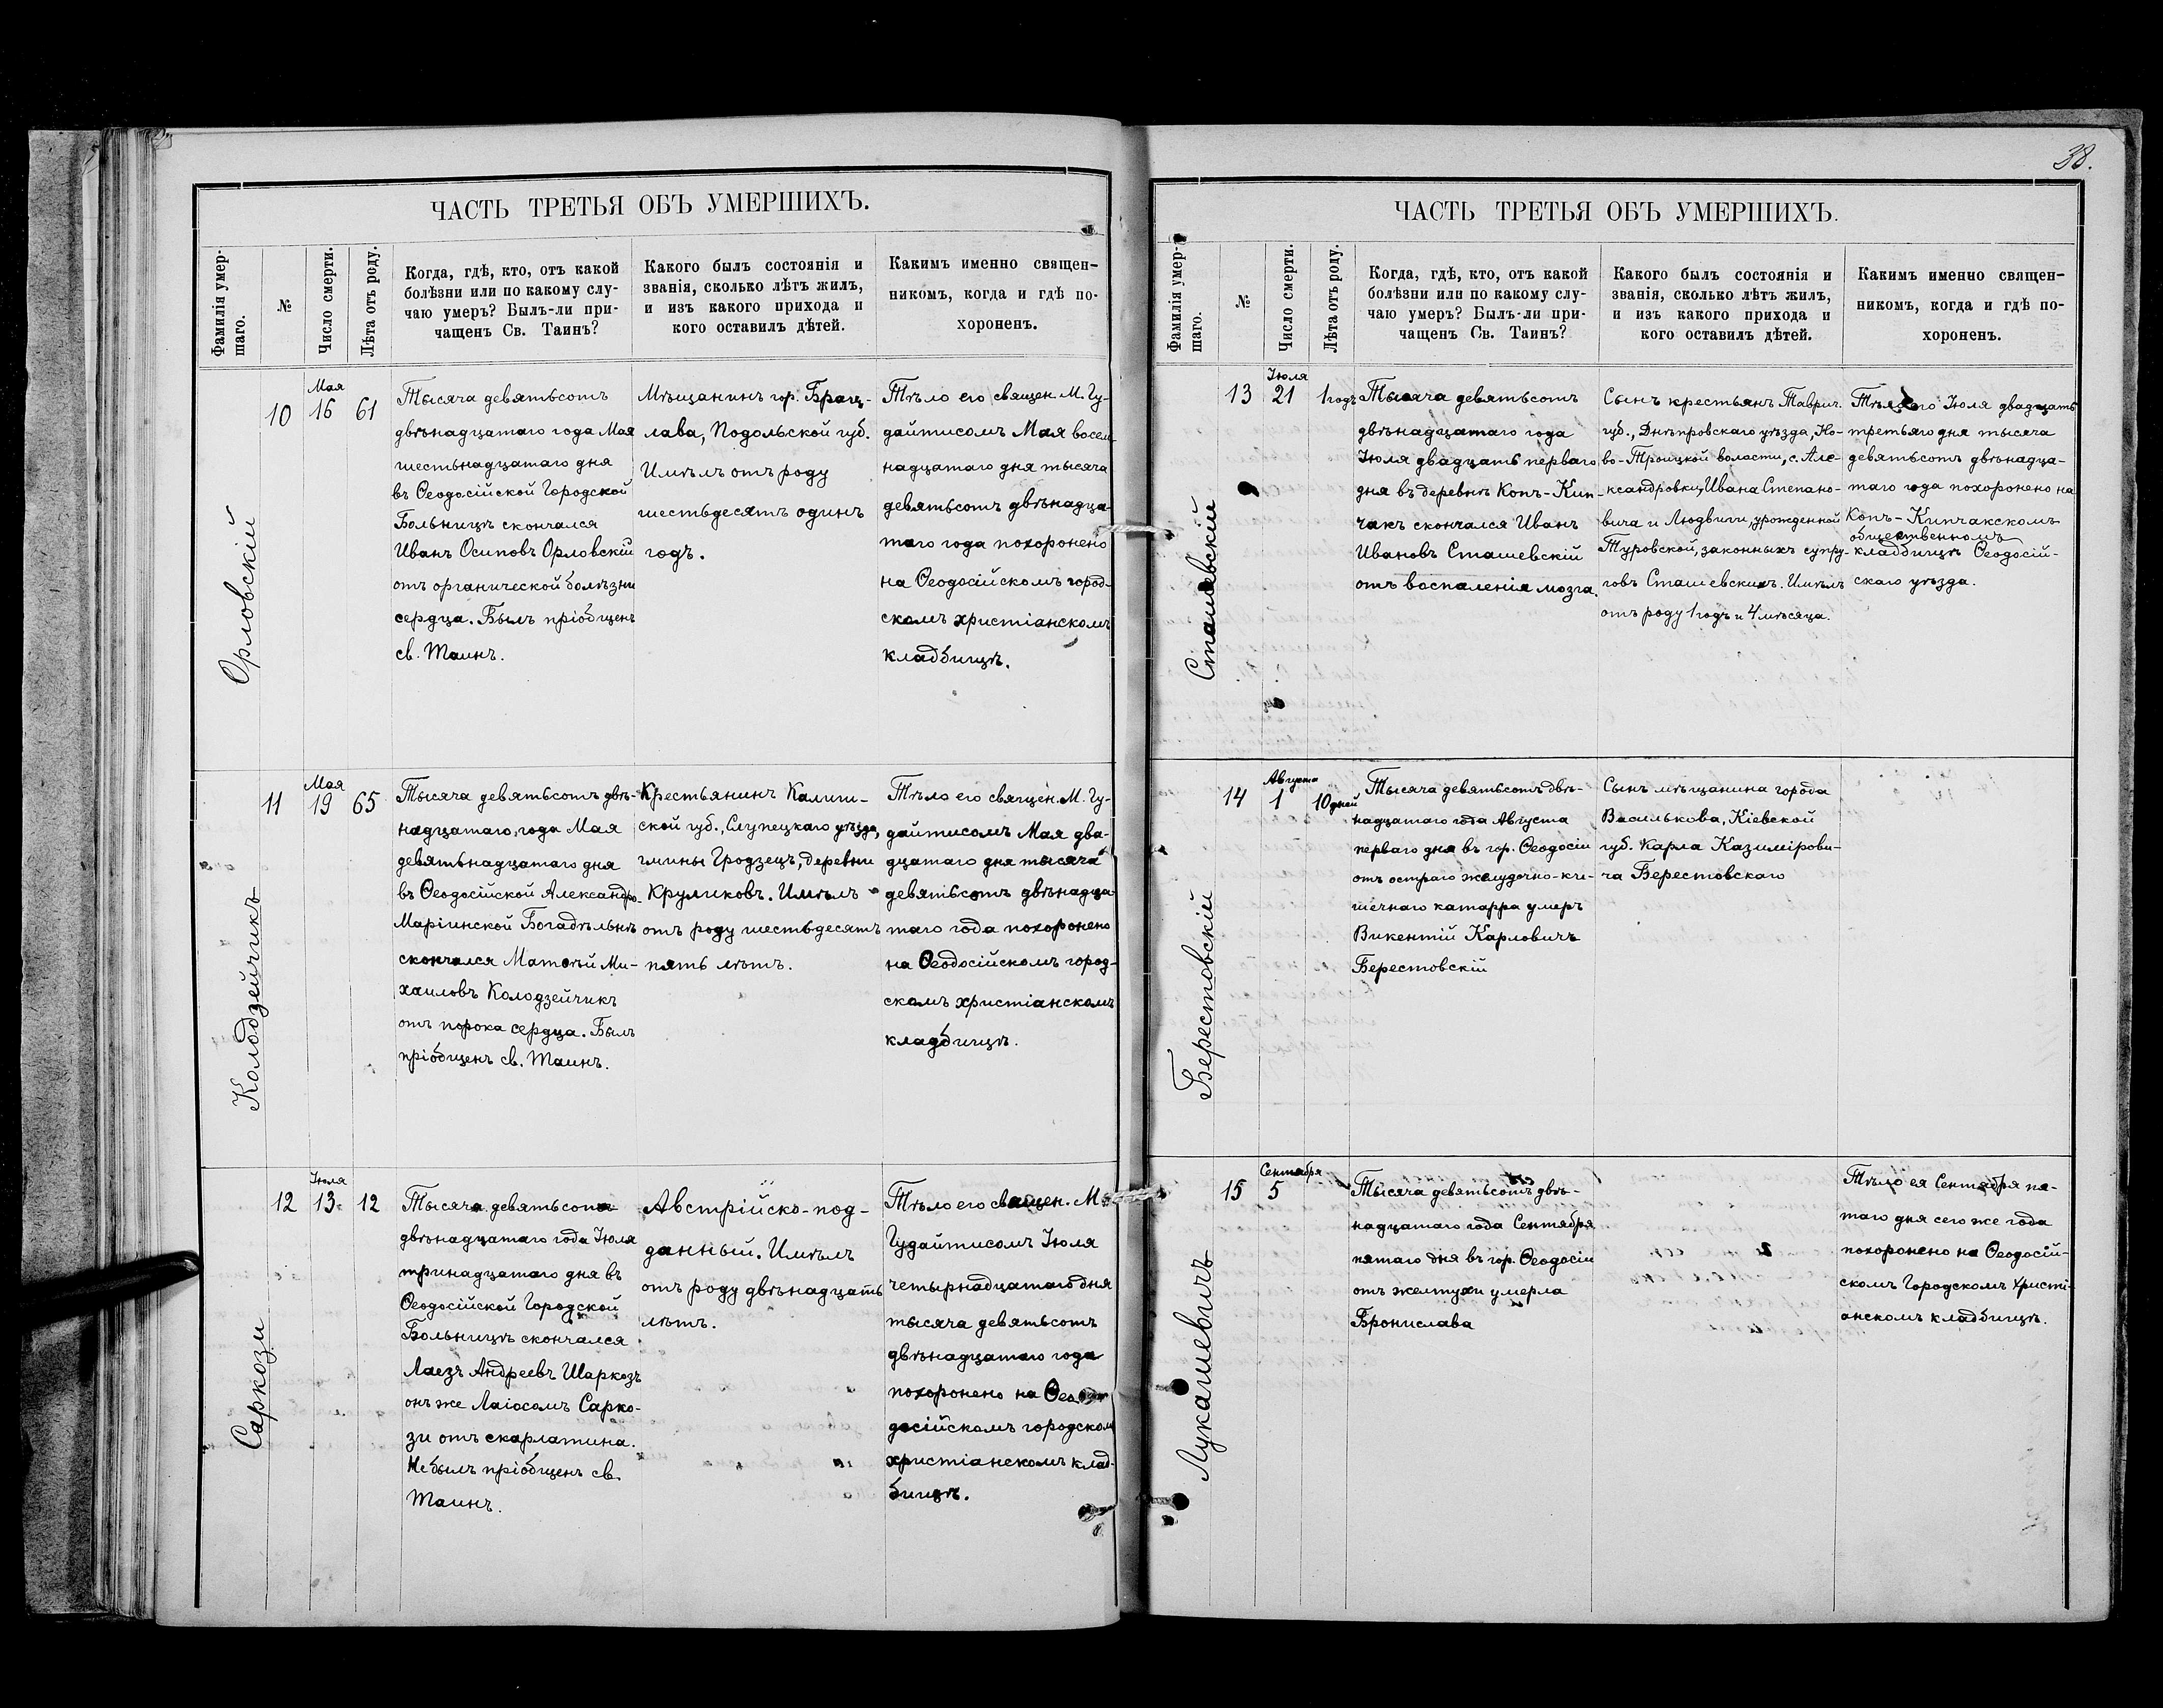 ЧАСТЬ ТРЕТЬЯ ОБЪ УМЕРШИХЪ.
Фамилія умер-
шаго.
№
Число смерти.
Лѣта отъ роду.
Когда, гдѣ, кто, отъ какой
болѣзни или по какому слу-
чаю умеръ? Былъ-ли при-
чащенъ Св. Таинъ?
Какого былъ состоянія и
званія, сколько лѣтъ жилъ,
и изъ какого прихода и
кого оставилъ дѣтей.
Какимъ именно священ-
никомъ, когда и гдѣ по-
хороненъ.
Орловскій
10
Мая
16
61
Тысяча девятьсотъ
двѣнадцатаго года Мая
шестьнадцатаго дня
въ Ѳеодосійской Городской
Больницѣ скончался
Иванъ Осиповъ Орловскій
отъ органической болѣзни
сердца. Былъ пріобщенъ
св. Таинъ.
Мѣщанинъ гор. Брац-
лава, Подольской губ.
Имѣлъ отъ роду
шестьдесятъ одинъ
годъ.
Тѣло его священ. М. Гу-
дайтисомъ Мая восем-
надцатаго дня тысяча
девятьсотъ двѣнадца-
таго года похоронено
на Ѳеодосійскомъ город-
скомъ христіанскомъ
кладбищѣ.
Колодзейчикъ
11
Мая
19
65
Тысяча девятьсотъ двѣ-
надцатаго года Мая
девятьнадцатаго дня
въ Ѳеодосійской Александро-
Маріинской Богадѣльнѣ
скончался Матвѣй Ми-
хаиловъ Колодзейчикъ
отъ порока сердца. Былъ
пріобщенъ св. Таинъ.
Крестьянинъ Калиш-
ской губ., Слупецкаго уѣзда,
гмины Гродзецъ, деревни
Круликовъ. Имѣлъ
отъ роду шестьдесятъ
пять лѣтъ.
Тѣло его священ. М. Гу-
дайтисомъ Мая два-
дцатаго дня тысяча
девятьсотъ двѣнадца-
таго года похоронено
на Ѳеодосійскомъ город-
скомъ христіанскомъ
кладбищѣ.
Саркози
12
Іюля
13
12
Тысяча девятьсотъ
двѣнадцатаго года Іюля
тринадцатаго дня въ
Ѳеодосійской Городской
Больницѣ скончался
Лаезъ Андреевъ Шаркозъ
онъ же Лаіосомъ Сарко-
зи отъ скарлатина.
Не былъ пріобщенъ св.
Таинъ.
Австрійско-под-
данный. Имѣлъ
отъ роду двѣнадцать
лѣтъ.
Тѣло его священ. М.
Гудайтисомъ Іюля
четырнадцатаго дня
тысяча девятьсотъ
двѣнадцатаго года
похоронено на Ѳео-
досійскомъ городском
христіанскомъ клад-
бищѣ.
38.
ЧАСТЬ ТРЕТЬЯ ОБЪ УМЕРШИХЪ.
Фамилія умер-
шаго.
№
Число смерти.
Лѣта отъ роду.
Когда, гдѣ, кто, отъ какой
болѣзни или по какому слу-
чаю умеръ? Былъ-ли при-
чащенъ Св. Таинъ?
Какого былъ состоянія и
званія, сколько лѣтъ жилъ,
и изъ какого прихода и
кого оставилъ дѣтей.
Какимъ именно священ-
никомъ, когда и гдѣ по-
хороненъ.
Сташевскій
13
Іюля
21
1 годъ
Тысяча девятьсотъ
двѣнадцатаго года
Іюля двадцать перваго
дня въ деревнѣ Копъ-Кип-
чакъ скончался Иванъ
Ивановъ Сташевскій
отъ воспаленія мозга.
Сынъ крестьянъ Таврич.
губ., Днѣпровскаго уѣзда, Но-
во-Троицкой волости, с. Але-
ксандровки, Ивана Степано-
вича и Людвиги, урожденной
Туровской, законныхъ супру-
говъ Сташевскихъ. Имѣлъ
отъ роду 1 годъ и 4 мѣсяца.
Тѣло его Іюля двадцать
третьяго дня тысяча
девятьсотъ двѣнадца-
таго года похоронено на
Копъ-Кипчакскомъ
общественномъ
кладбищѣ Ѳеодосій-
скаго уѣзда.
Берестовскій
14
Августа
1
10 дней
Тысяча девятьсотъ двѣ-
надцатаго года Августа
перваго дня въ гор. Ѳеодосіи
отъ остраго желудочно-ки-
шечнаго катарра умеръ
Викентій Карловичъ
Берестовскій
Сынъ мѣщанина города
Василькова, Кіевской
губ. Карла Казимірови-
ча Берестовскаго
Лукашевичъ
15
Сентября
5
Тысяча девятьсотъ двѣ-
надцатаго года Сентября
пятаго дня въ гор. Ѳеодосіи
отъ желтухи умерла
Бронислава
Тѣло ея Сентября пя-
таго дня сего же года
похоронено на Ѳеодосій-
скомъ Городскомъ христі-
анскомъ кладбищѣ.